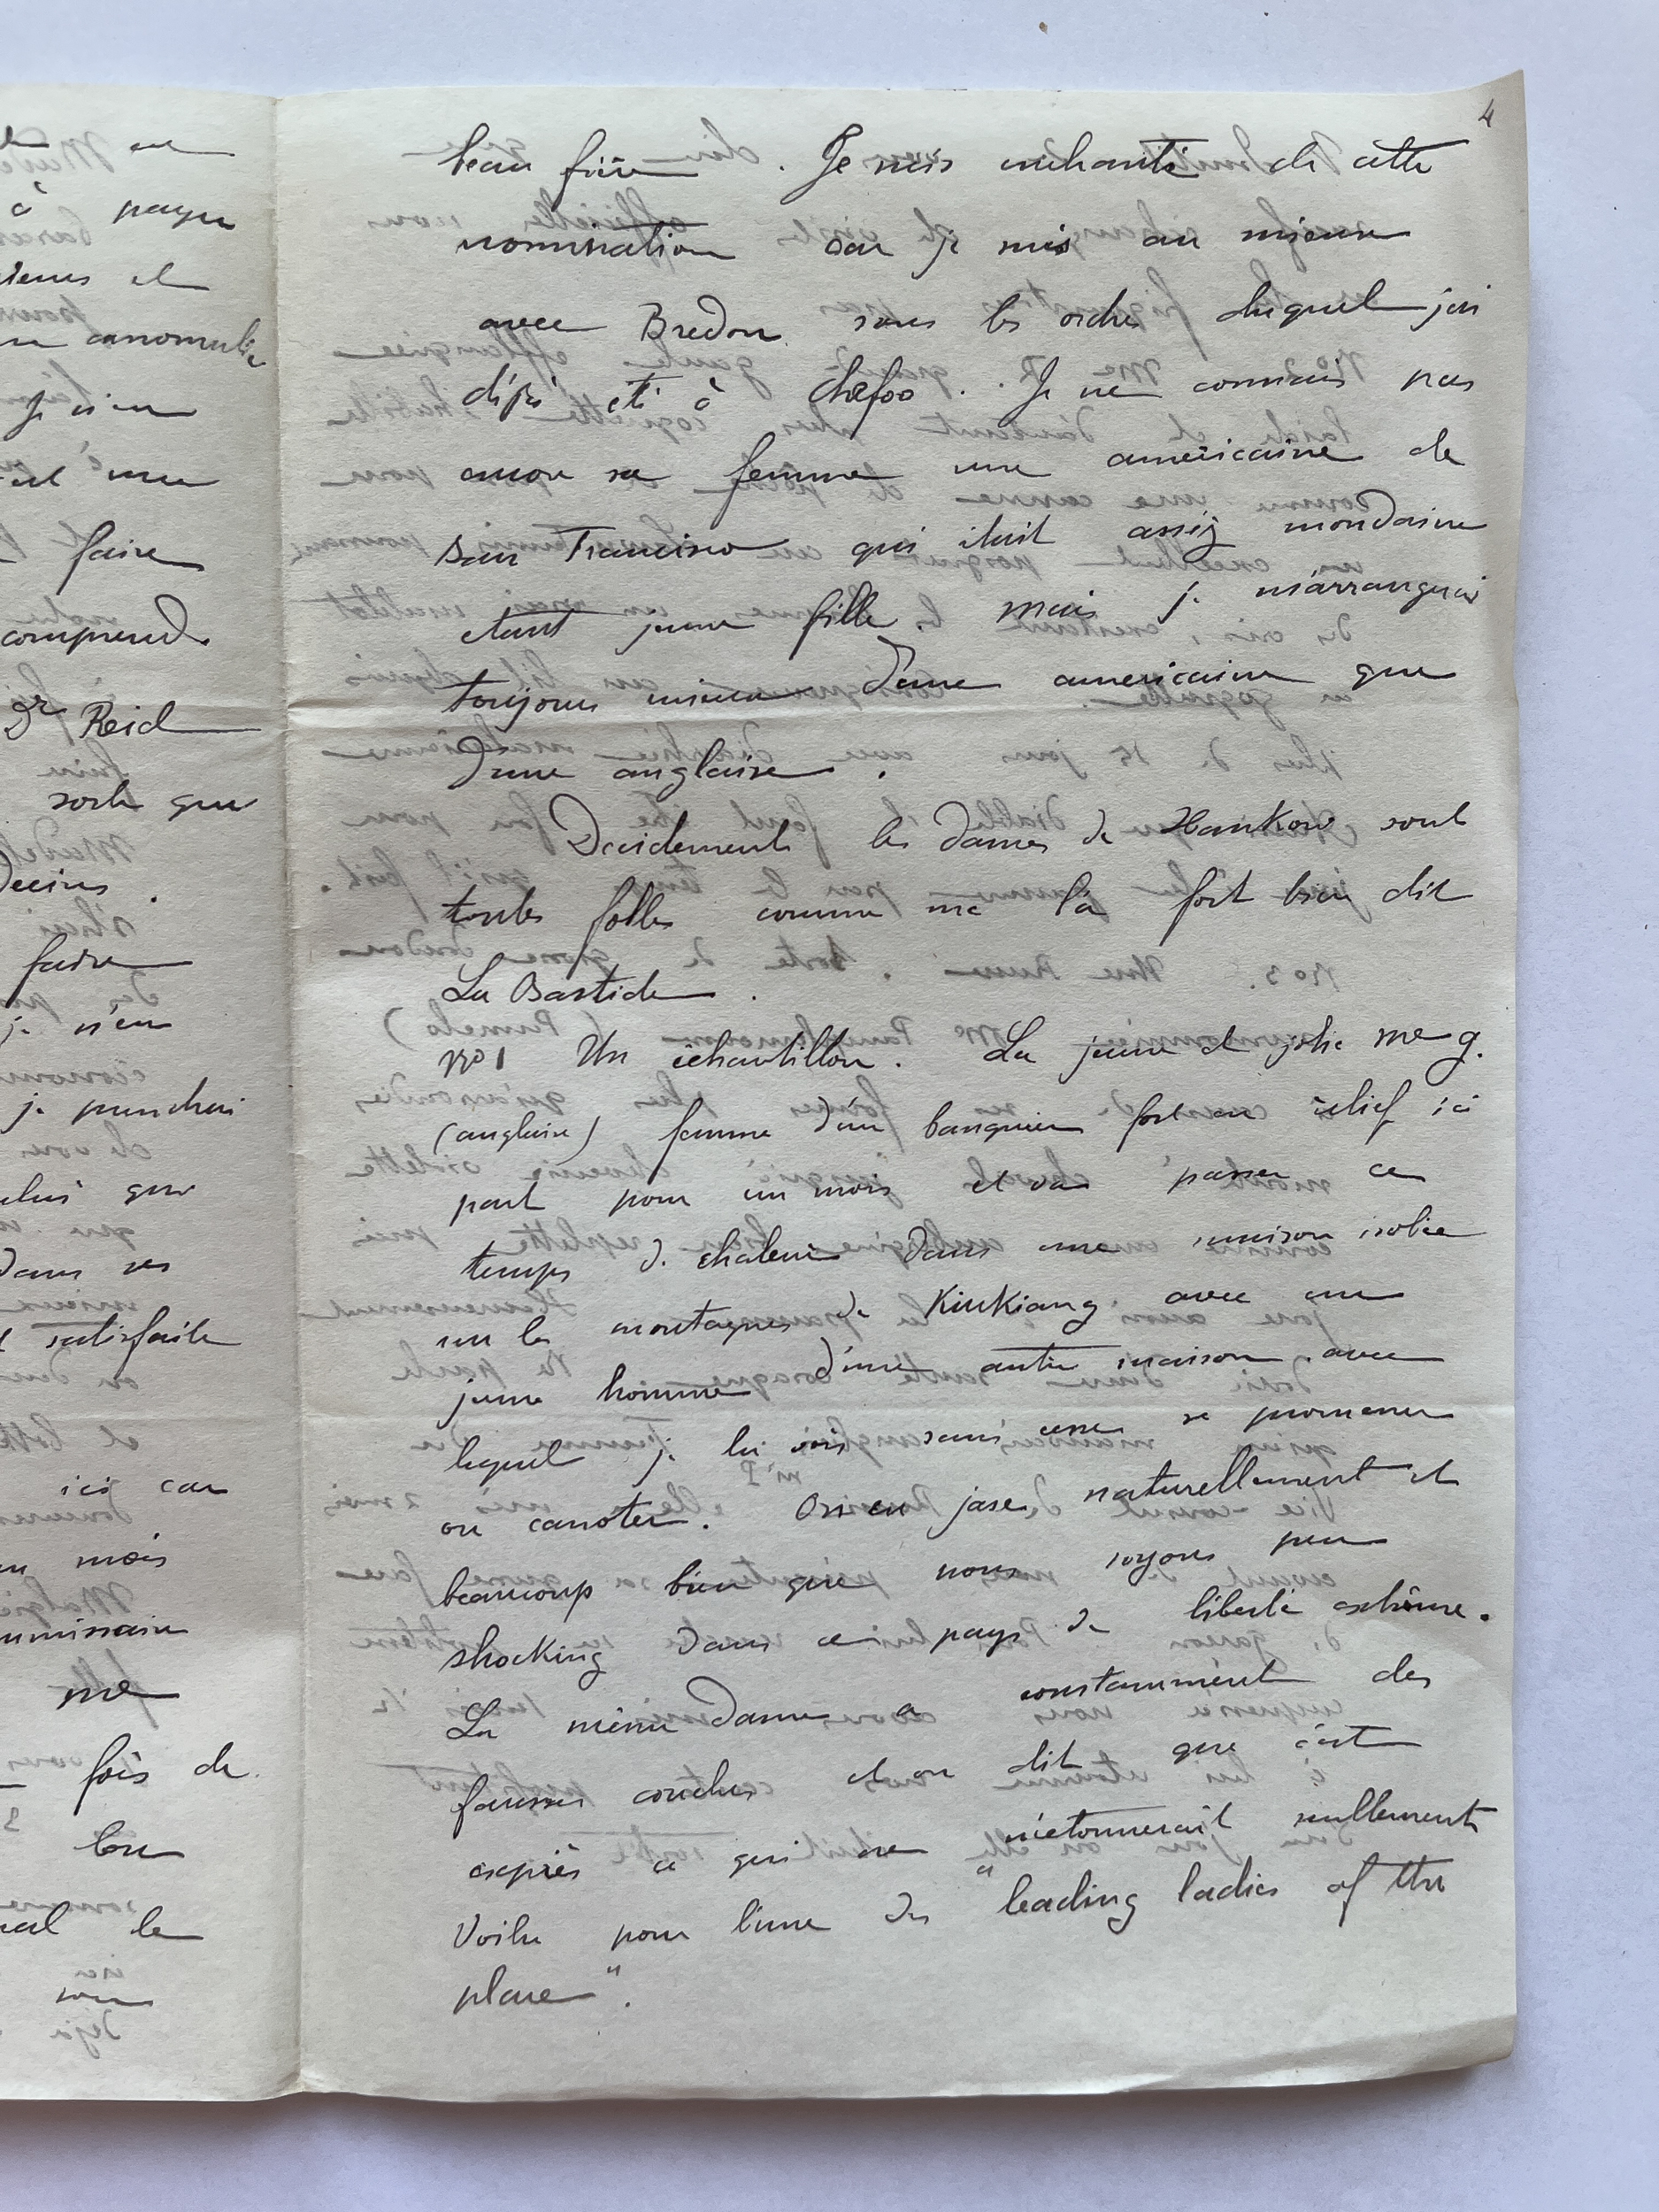 4
beau frère. Je suis enchanté de cette
nomination car je suis au mieux
avec Bredon sous les ordres duquel j'ai
déjà été à Chefoo. Je ne connais pas
encore sa femme une américaine de
San Francisco qui était assez mondaine
etant jeune fille, mais je m'arrangerai
toujours mieux d'une americaine que
d'une anglaise.
Decidement les dames de Hankow sont
toutes folles comme me l'a fort bien dit
La Bastide.
No 1 Un échantillon. La jeune et jolie Me G.
(anglaise) femme d'un banquier fort en relief ici
part pour un mois et va passer ce
temps de chaleur dans une maison isolée
sur les montagnes de KiuKiang avec un
jeune homme d'une autre maison avec
lequel je la vois sans cesse se promener
ou canoter. On en jase naturellement et
beaucoup bien que nous soyons peu
shocking dans ce pays de liberté extrême.
La même dame a constamment des
fausses couches et on dit que c'est
exprès ce qui ne m'etonnerait nullement
Voila pour l'une des "leading ladies of the
place".
à payer
et
Je
faire
comprend
Dr Reid
sorte que
faire
je n'en
je
que
dans ses
satisfaite
ici car
mois
me
fois de
le